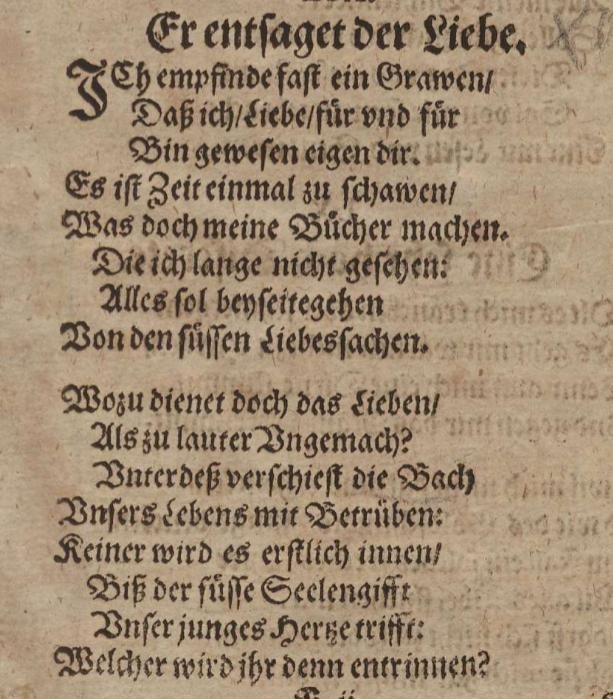 Er entsaget der Liebe.
JCh empfinde fast ein Grawen/
Daß ich/Liebe/für vnd für
Bin gewesen eigen dir.
Es ist Zeit einmal zu schawen/
Was doch meine Bücher machen.
Die ich lange nicht gesehen:
Alles sol beyseitegehen
Von den süssen Liebessachen.
Wozu dienet doch das Lieben/
Als zu lauter Vngemach?
Vnterdeß verschiest die Bach
Vnsers Lebens mit Betrüben:
Keiner wird es erstlich innen/
Biß der süsse Seelengifft
Vnser junges Hertze trifft:
Welcher wird jhr denn entrinnen?